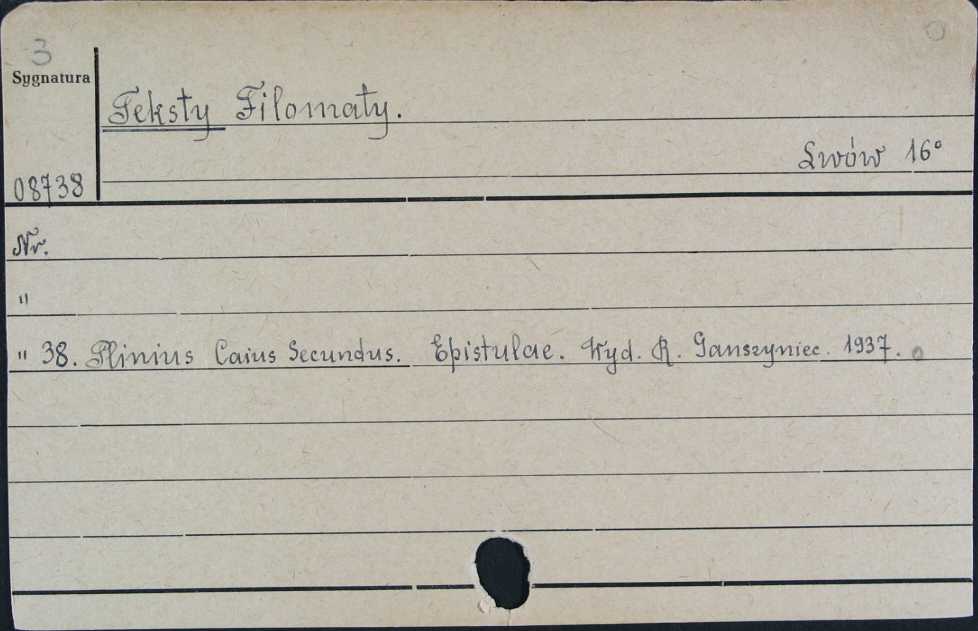 3
Sygnatura
Teksty Filomaty.
Lwów 16°
08738
Nr.
"
" 38. Plinius Caius Secundus. Epistulae. Wyd. R. Ganszyniec. 1937.